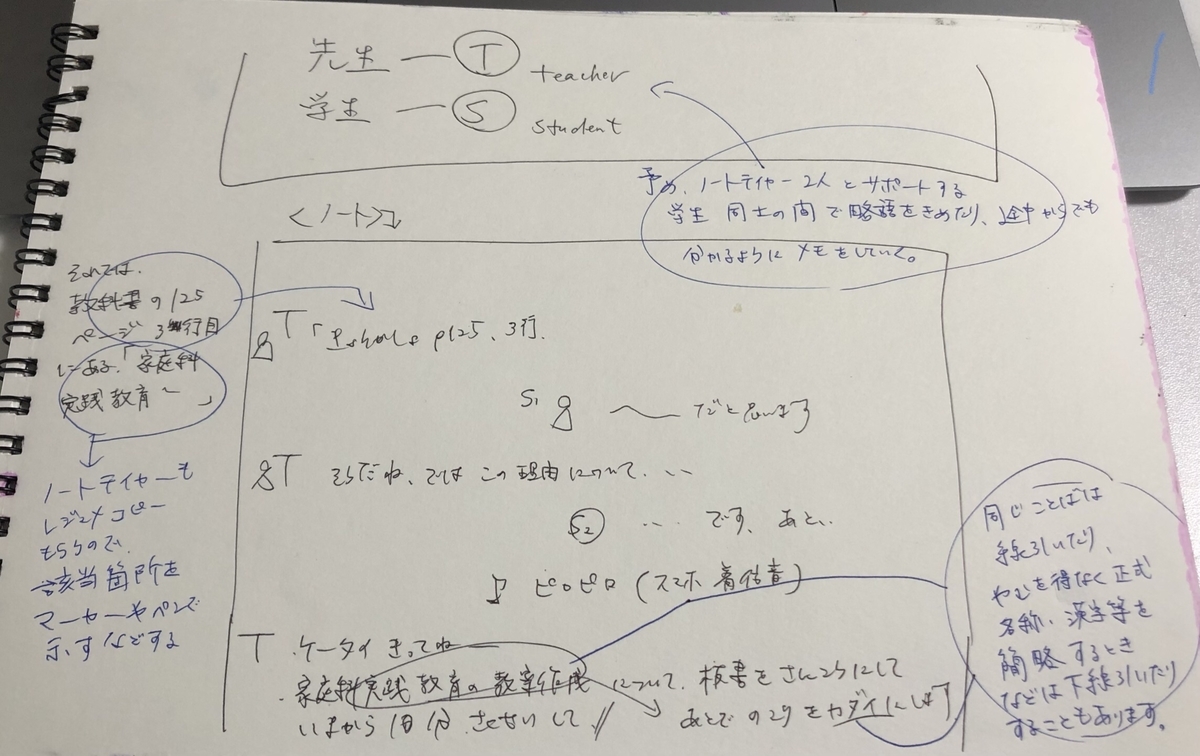 先生 — T teacher
学生 — S student
予め、ノートテイヤー2人とサポートする
学生同士の間で略語をきめたり、途中からでも
分かるようにメモをしていく。
<ノート>
それでは、
教科書の125
ページ 3行目
にある「家庭科
実践教育〜
」
ノートテイヤーも
レジメコピー
もらうので、
該当箇所を
マーカーやペンで
示すなどする
T「 p125、3行.
S1 〜 だと思います
T そうだね、では この理由について、…
S2 … です、あと…
♪ ピロピロ (スマホ着信音)
T ・ケータイ きってね
・家庭科実践教育の教案作成 について、板書をさんこうにして
いまから 分 させないして // あとで のこりをカダイにします
同じことばは
線引いたり、
やむを得なく正式
名称、漢字等を
簡略するとき
などは下線引いたり
することもあります。